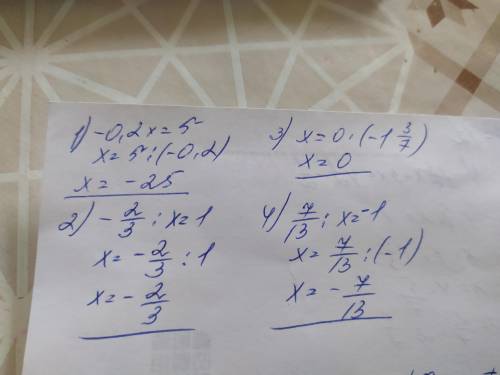 1) -0,2x=5
x=5:(-0,2)
x= -25
2) -2/3 : x=1
x= -2/3 : 1
x= -2/3
3) x=0:(-1 3/7)
x=0
4) 7/13 : x=-1
x= 7/13 :(-1)
x= -7/13